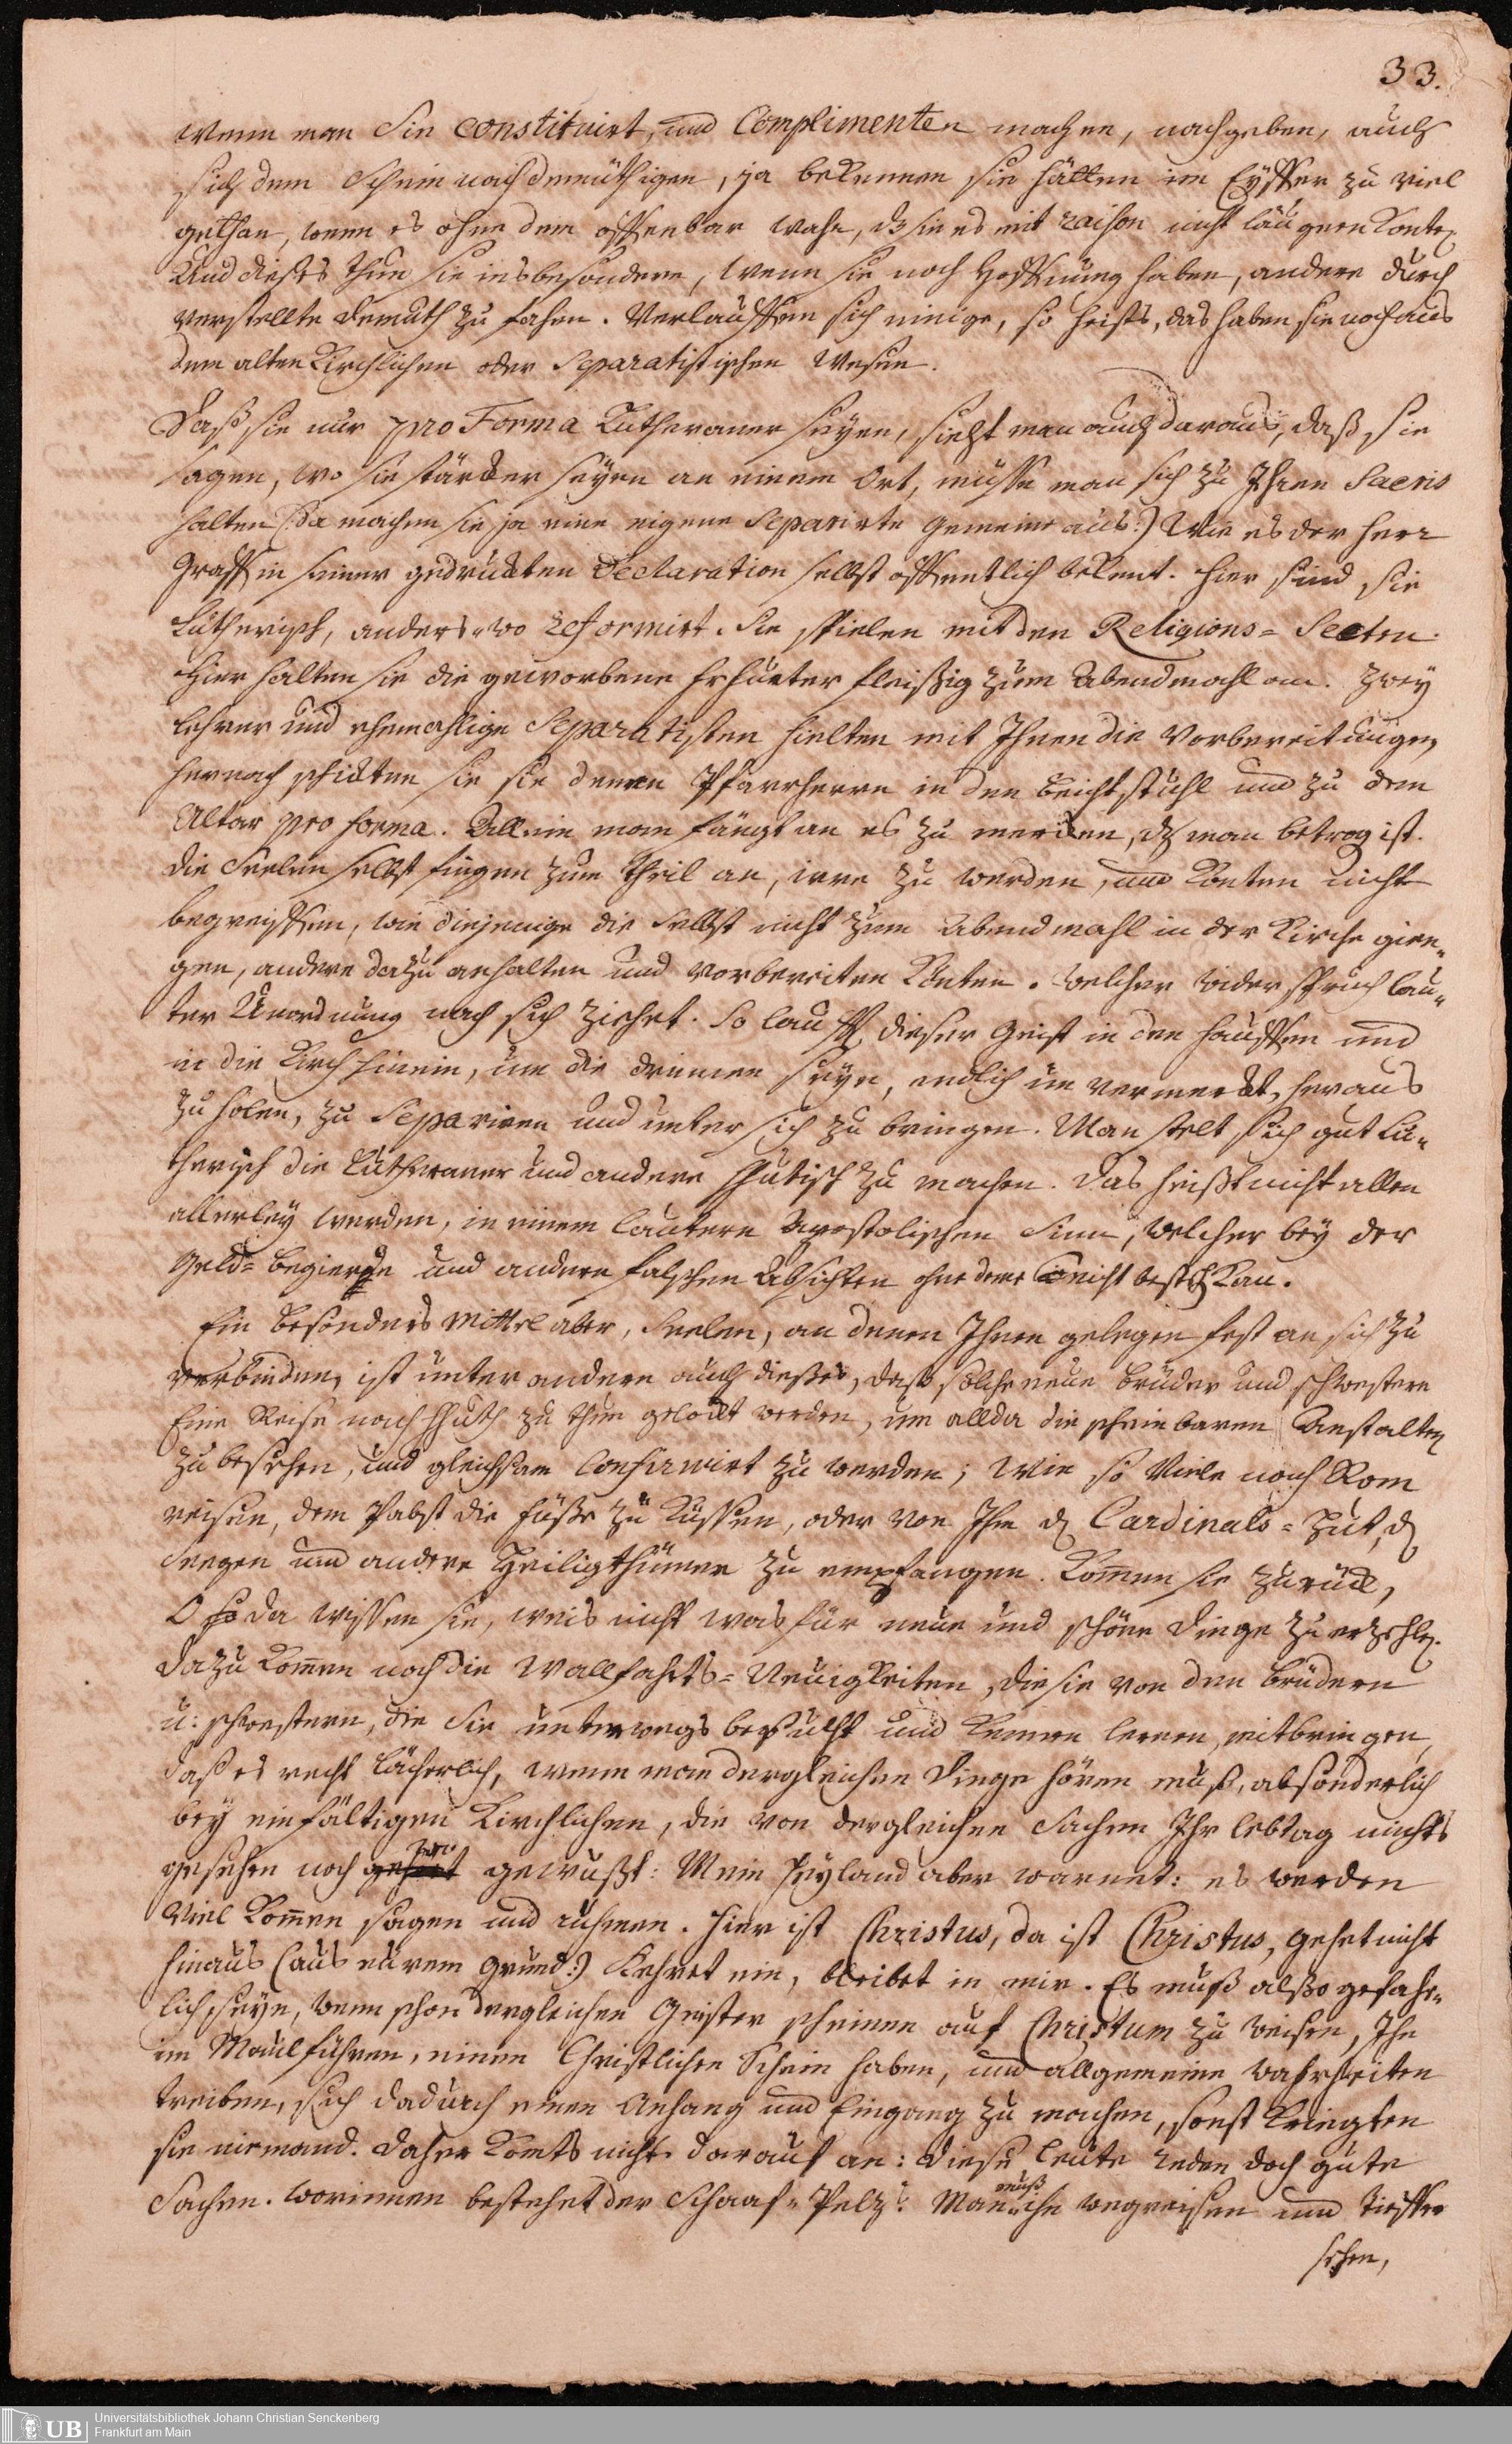 33.
wenn man Sie constituirt, und Complimenten machen, nachgeben, auch
sich dem Schein nach demüthigen, ja bekennen sie hätten im Eyffer zu viel
gethan, wenn es ohne dem offenbar wahr, d sie es mit raison nicht läugnen konten.
Und dieses thun sie insbesondere, wenn sie noch Hoffnung haben, andere durch
verstellte demuth zu fahen. Verlauffen sich einige, so heists, das haben sie noch aus
dem alten Kirchlichen oder Separatistischen Wesen.
Daß sie nur pro Forma Lutheraner seyen, sieht man auch daraus, daß sie
sagen, wo sie stärcker seyen an einem Ort, müsse man sich zu Ihren Sacris
halten (: da machen sie ja eine eigene Separirte Gemeine aus :) Wie es der Herr
Graff in seiner gedruckten Declaration selbst öffentlich bekent. Hier sind sie
Lutherisch, anders-wo reformirt. Sie spielen mit den Religions= Secten.
Hier halten sie die geworbene Erhueter fleißig zum Abendmahl an. Zwey
Lehrer und ehemahlige Separatisten hielten mit Ihnen die Vorbereitungen,
hernach schickten sie sie denen Pfarrherrn in den Beichtstuhl und zu dem
Altar pro forma. Allein man fängt an es zu mercken, dß man betrog ist.
die Seelen selbst fingen zum theil an, irre zu werden, und konten nicht
begreiffen, wie diejenige die selbst nicht zum Abendmahl in der Kirche gien-
gen, andere dazu anhalten und vorbereiten könten. welcher widerspruch lau-
ter Unordnung nach sich ziehet. So laufft dieser Geist in den Hauffen und
in die Kirch hinein, um die drinnen seyn, endlich un vermerckt, heraus
zu holen, zu Separiren und unter sich zu bringen. Man stelt sich gut Lu-
therisch die Lutheraner und andere Hhutisch zu machen. Das heißt nicht allen
allerley werden, in einem lautern Apostolischen Sinn, welcher bey der
Geld= begierde und andern falschen Absichten ohne dem nicht besteh kan.
Ein besonders Mittel aber, Seelen, an denen Ihnen gelegen fest an sich zu
verbinden, ist unter andern auch dießes, daß solche neue Brüder und schwestern
Eine Reise nach Hhuth zu thun gelockt werden, um allda die scheinbaren Anstalten
zu besehen, und gleichsam Confirmirt zu werden; Wie so Viele nach Rom
reisen, dem Pabst die füße zu küssen, oder von Ihm d Cardinals= Hut, d
Seegen und andere Heiligthümer zu empfangen. Kommen sie zurück,
O so da wissen sie, weis nicht was für neue und schöne dinge zu erzehlen.
dazu kommen noch die Wallfahrts= Neuigkeiten, die sie von den Brüdern
u: schwestern, die Sie unterwegs besucht und kennen lernen, mitbringen,
daß es recht lächerlich, wenn man dergleichen Dinge hören muß, absonderlich
bey einfältigen Kirchlichen, die von dergleichen Sachen Ihr lebtag nichts
gesehen noch gewußt: Mein Heyland aber warnet: es werden
Viel kommen sagen und ruhmen. Hier ist Christus, da ist Christus, gehet nicht
hinaus (aus eurem Grund:) kehret ein, bleibet in mir. Es muß alßo gefähr-
lich seyn, wenn schon dergleichen Geister scheinen auf Christum zu weisen, Ihn
im Maul führen, einen Christlichen Schein haben, und allgemeine Wahrheiten
treiben, sich dadurch einen Anhang und Eingang zu machen, sonst kriegten
sie niemand. Daher komts nicht darauf an: diese leute reden doch gute
Sachen. worinnen bestehet der Schaaf= Peltz: Man muß ihn wegreißen und tieffer
sehen,
UB
Universitätsbibliothek Johann Christian Senckenberg
Frankfurt am Main